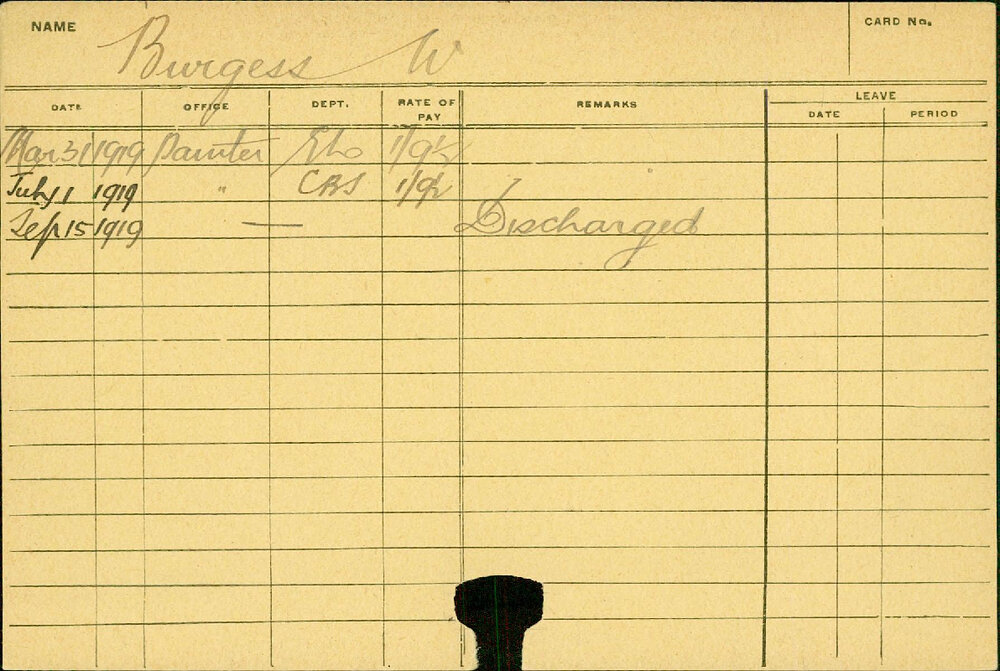 NAME Burgess W CARD No.
DATE OFFICE DEPT. RATE OF PAY REMARKS LEAVE
DATE PERIOD
Mar 31 1919 Painter 1/9½
July 1 1919 " CBS 1/9½
Sep 15 1919 — Discharged